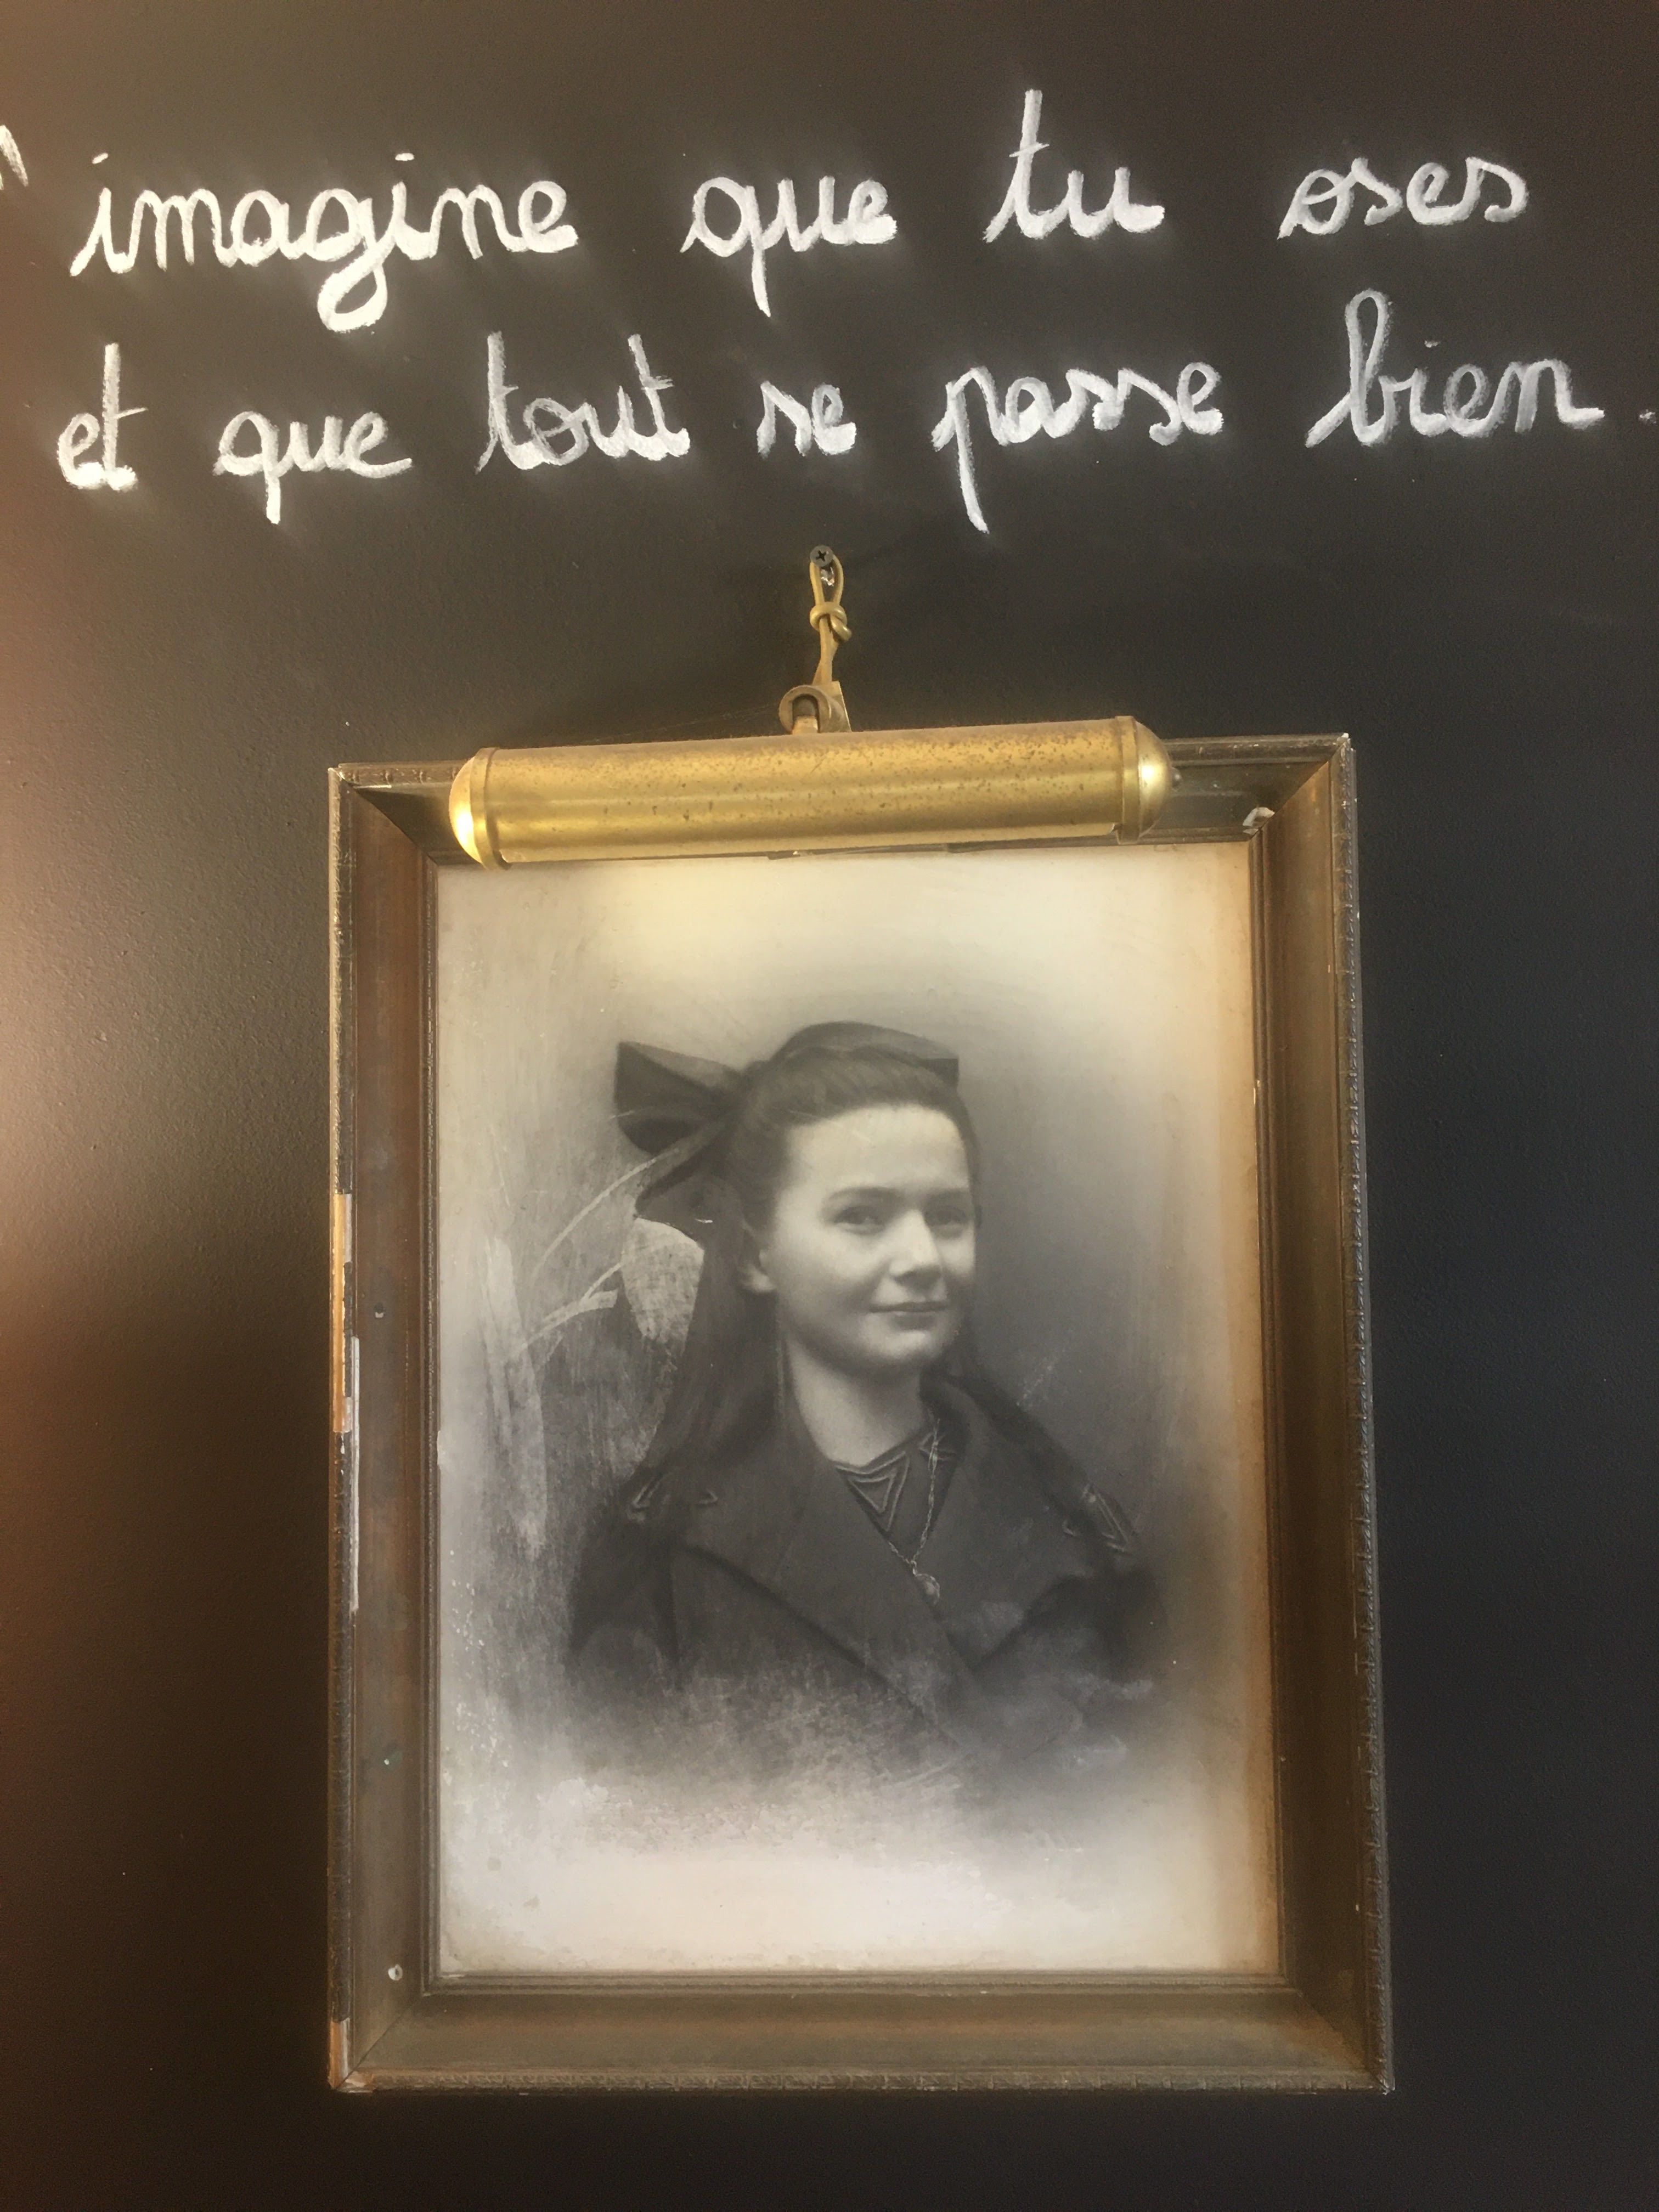 "imagine que tu oses
et que tout se passe bien.